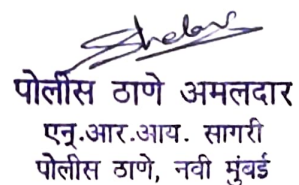 पोलीस ठाणे अमलदार
एन्.आर.आय. सागरी
पोलीस ठाणे, नवी मुंबई